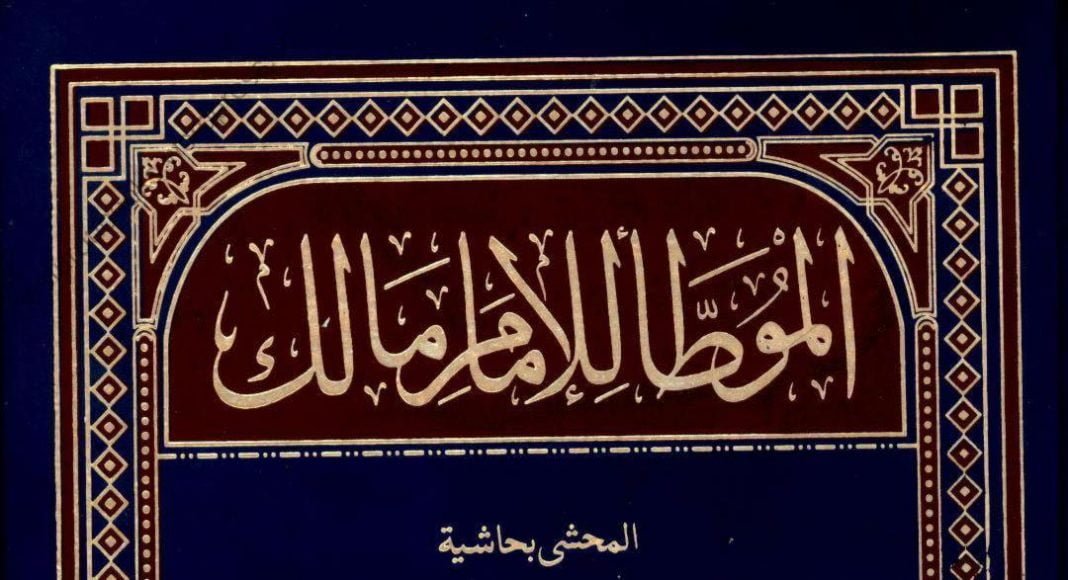 الموُطّأ للإمامِ مَالك
المحشى بحاشية